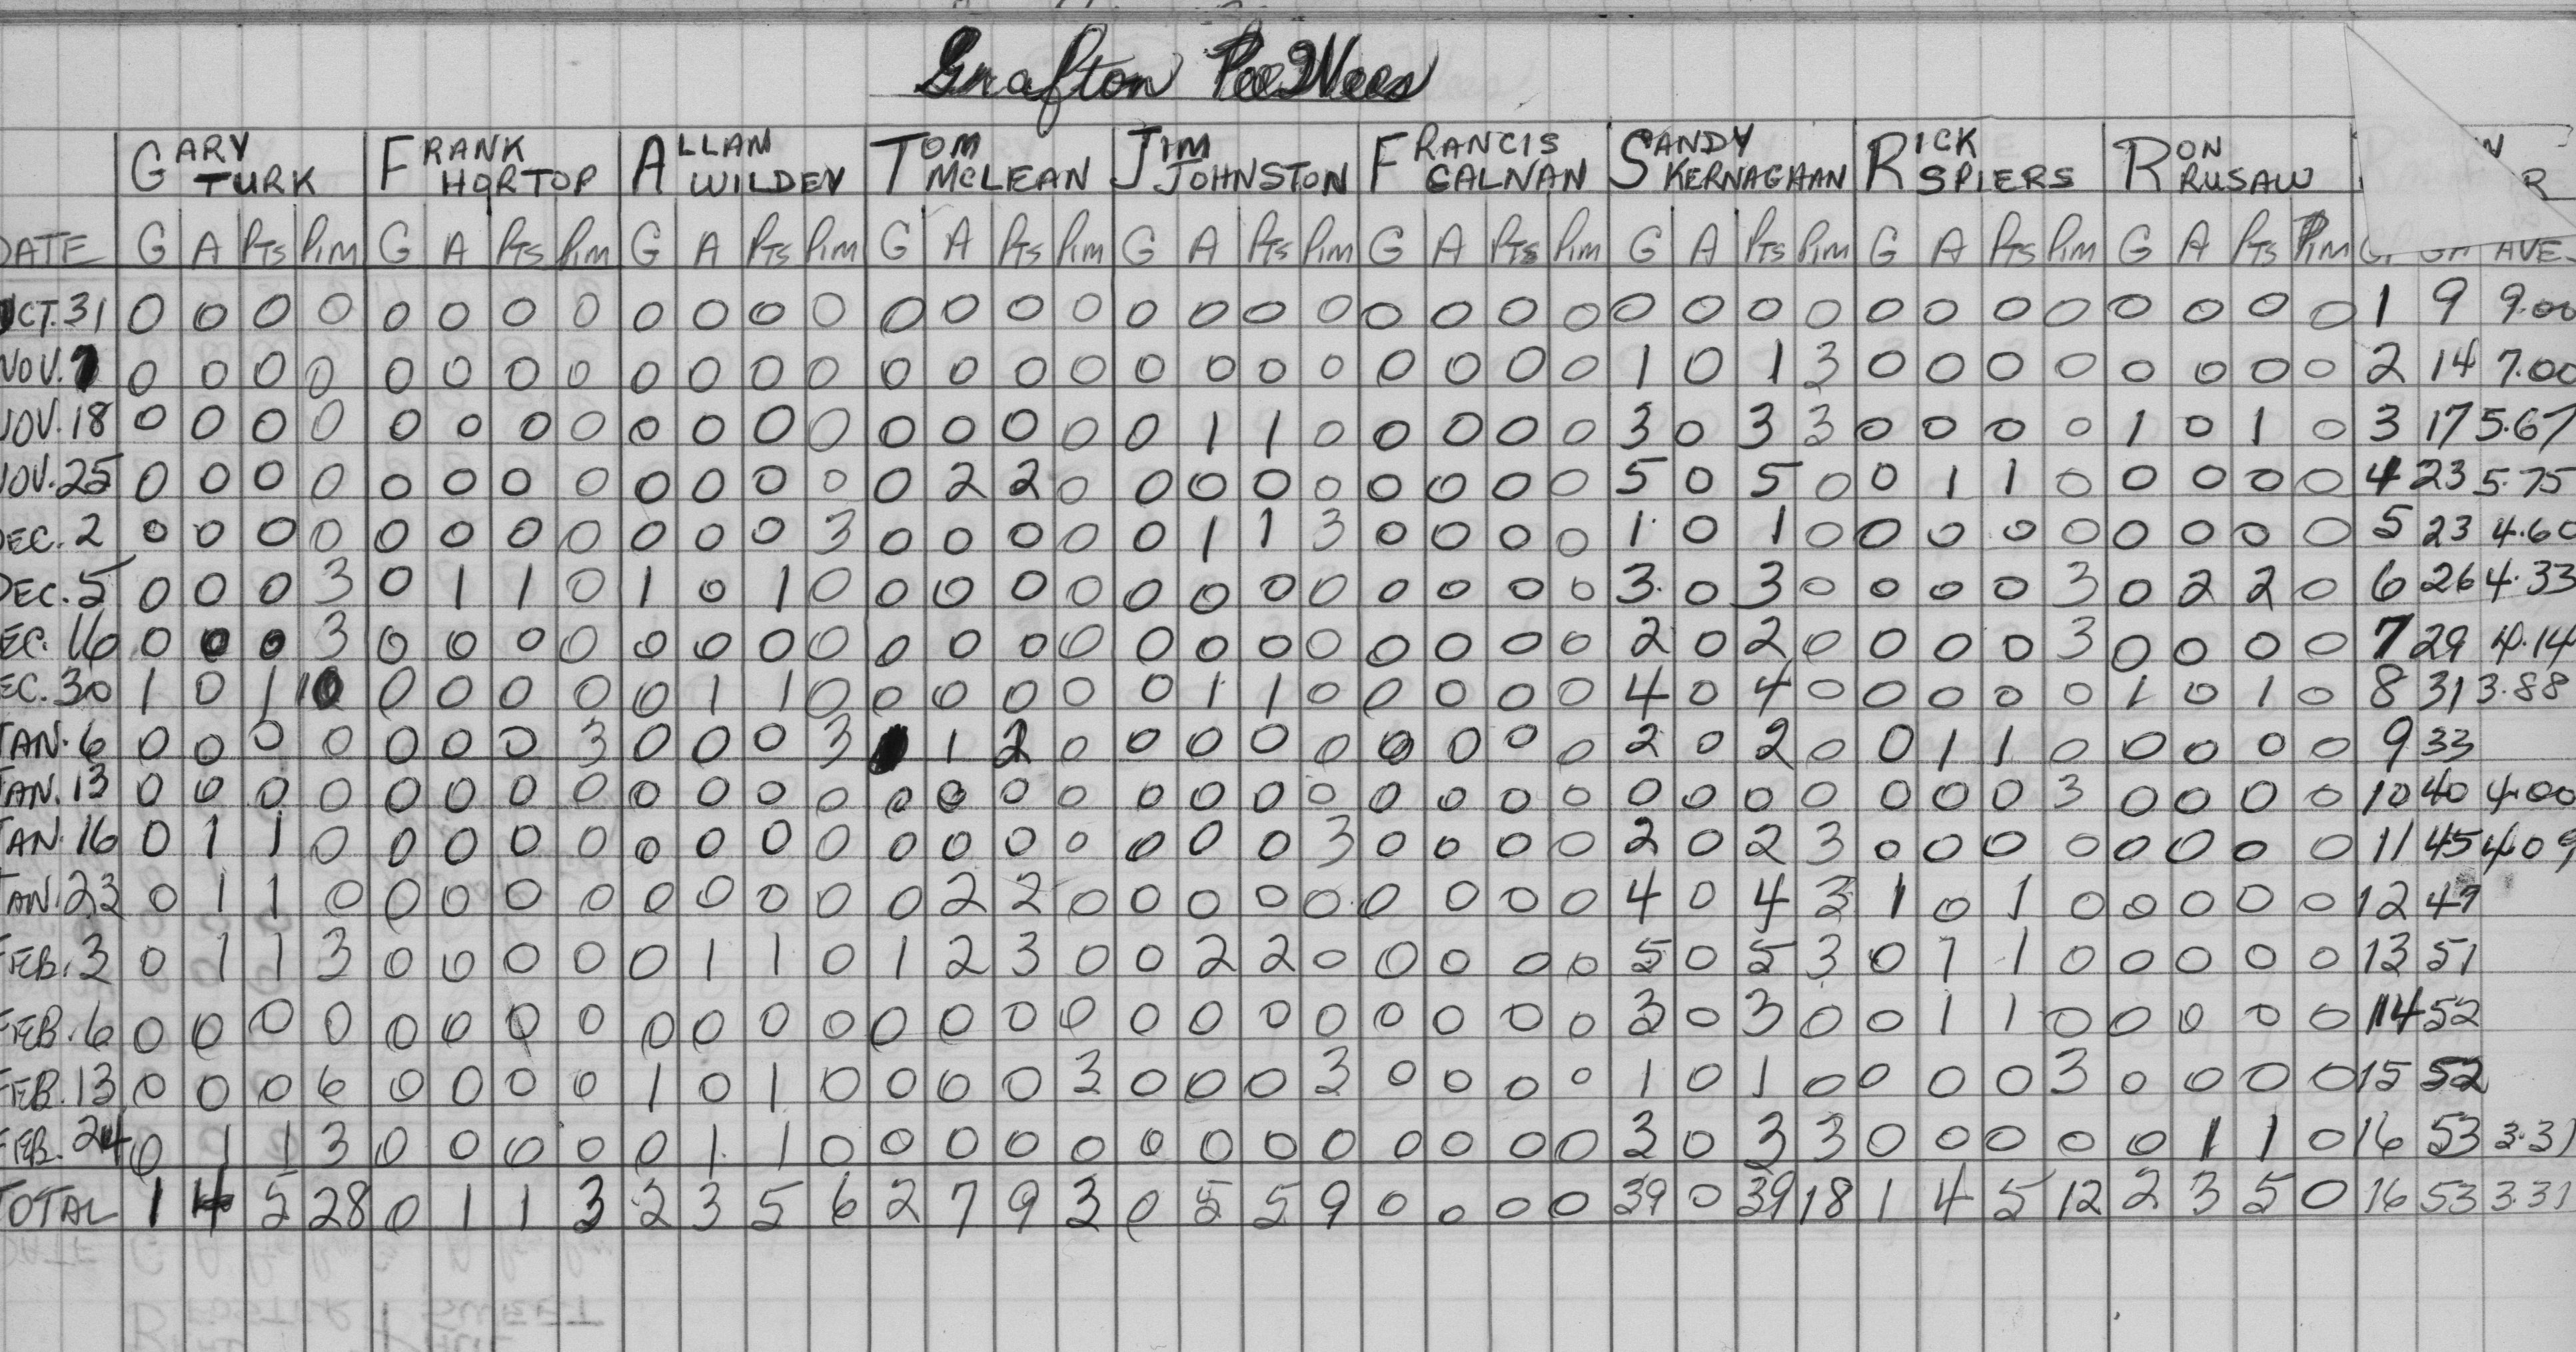 Grafton PeeWees
GARY TURK FRANK HORTOP ALLAN WILDEY TOM McLEAN JIM JOHNSTON FRANCIS CALNAN SANDY KERNAGHAN RICK SPIERS RON RUSAW
DATE G A PTS PIM G A PTS PIM G A PTS PIM G A PTS PIM G A PTS PIM G A PTS PIM G A PTS PIM G A PTS PIM G A PTS PIM G. GA AVE.
OCT. 31 0 0 0 0 0 0 0 0 0 0 0 0 0 0 0 0 0 0 0 0 0 0 0 0 0 0 0 0 0 0 0 0 0 0 0 0 1 9 9.00
NOV. 7 0 0 0 0 0 0 0 0 0 0 0 0 0 0 0 0 0 0 0 0 0 0 0 0 1 0 1 3 0 0 0 0 0 0 0 0 2 14 7.00
NOV. 18 0 0 0 0 0 0 0 0 0 0 0 0 0 0 0 0 0 1 1 0 0 0 0 0 3 0 3 3 0 0 0 0 1 0 1 0 3 17 5.67
NOV. 25 0 0 0 0 0 0 0 0 0 0 0 0 0 2 2 0 0 0 0 0 0 0 0 0 5 0 5 0 0 1 1 0 0 0 0 0 4 23 5.75
DEC. 2 0 0 0 0 0 0 0 0 0 0 0 3 0 0 0 0 0 1 1 3 0 0 0 0 1 0 1 0 0 0 0 0 0 0 0 0 5 23 4.60
DEC. 5 0 0 0 3 0 1 1 0 1 0 1 0 0 0 0 0 0 0 0 0 0 0 0 0 3 0 3 0 0 0 0 3 0 2 2 0 6 26 4.33
EC. 16 0 0 0 3 0 0 0 0 0 0 0 0 0 0 0 0 0 0 0 0 0 0 0 0 2 0 2 0 0 0 0 3 0 0 0 0 7 29 4.14
EC. 30 1 0 1 10 0 0 0 0 0 1 1 0 0 0 0 0 0 1 1 0 0 0 0 0 4 0 4 0 0 0 0 0 1 0 1 0 8 31 3.88
JAN. 6 0 0 0 0 0 0 0 3 0 0 0 3 1 2 0 0 0 0 0 0 0 0 0 2 0 2 0 0 1 1 0 0 0 0 0 9 33
JAN. 13 0 0 0 0 0 0 0 0 0 0 0 0 0 0 0 0 0 0 0 0 0 0 0 0 0 0 0 0 0 0 0 3 0 0 0 0 10 40 4.00
JAN. 16 0 1 1 0 0 0 0 0 0 0 0 0 0 0 0 0 0 0 0 3 0 0 0 0 2 0 2 3 0 0 0 0 0 0 0 0 11 45 4.09
JAN. 23 0 1 1 0 0 0 0 0 0 0 0 0 0 2 2 0 0 0 0 0 0 0 0 0 4 0 4 3 1 0 1 0 0 0 0 0 12 49
FEB. 3 0 1 1 3 0 0 0 0 0 1 1 0 1 2 3 0 0 2 2 0 0 0 0 0 5 0 5 3 0 1 1 0 0 0 0 0 13 51
FEB. 6 0 0 0 0 0 0 0 0 0 0 0 0 0 0 0 0 0 0 0 0 0 0 0 0 3 0 3 0 0 1 1 0 0 0 0 0 14 52
FEB. 13 0 0 0 6 0 0 0 0 1 0 1 0 0 0 0 3 0 0 0 3 0 0 0 0 1 0 1 0 0 0 0 3 0 0 0 0 15 52
FEB. 24 0 1 1 3 0 0 0 0 0 1 1 0 0 0 0 0 0 0 0 0 0 0 0 0 3 0 3 3 0 0 0 0 0 1 1 0 16 53 3.31
TOTAL 1 4 5 28 0 1 1 3 2 3 5 6 2 7 9 3 0 5 5 9 0 0 0 0 39 0 39 18 1 4 5 12 2 3 5 0 16 53 3.31